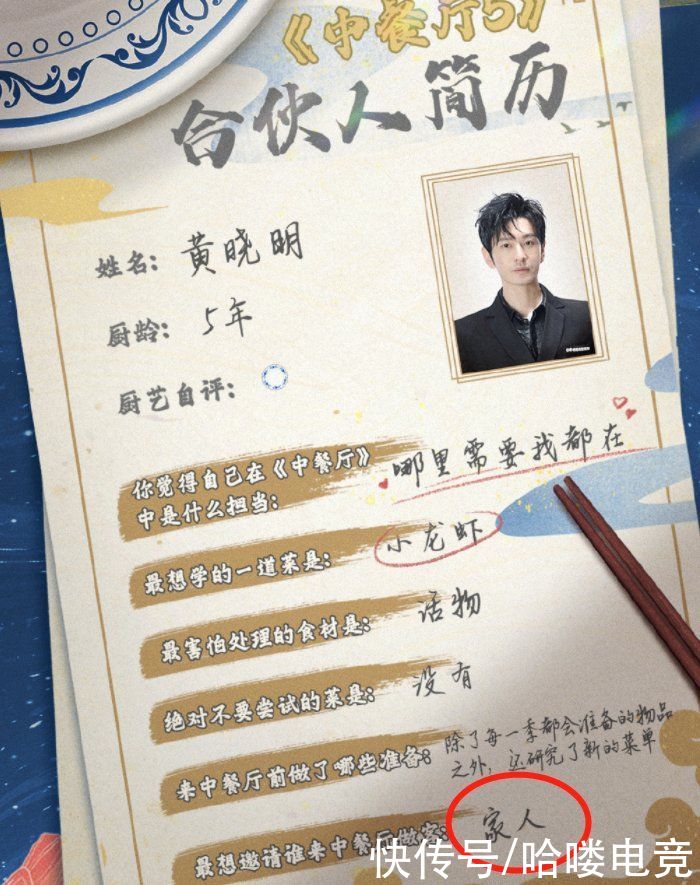 《中餐厅5》
合伙人简历
姓名：黄晓明
厨龄：5年
厨艺自评：
你觉得自己在《中餐厅》
中是什么担当：
哪里需要我都在
最想学的一道菜是：小龙虾
最害怕处理的食材是：活物
绝对不要尝试的菜是：没有
来中餐厅前做了哪些准备：
除了每一季都会准备的物品
之外，还研究了新的菜单
最想邀请谁来中餐厅做客：家人
快传号/哈喽电竞